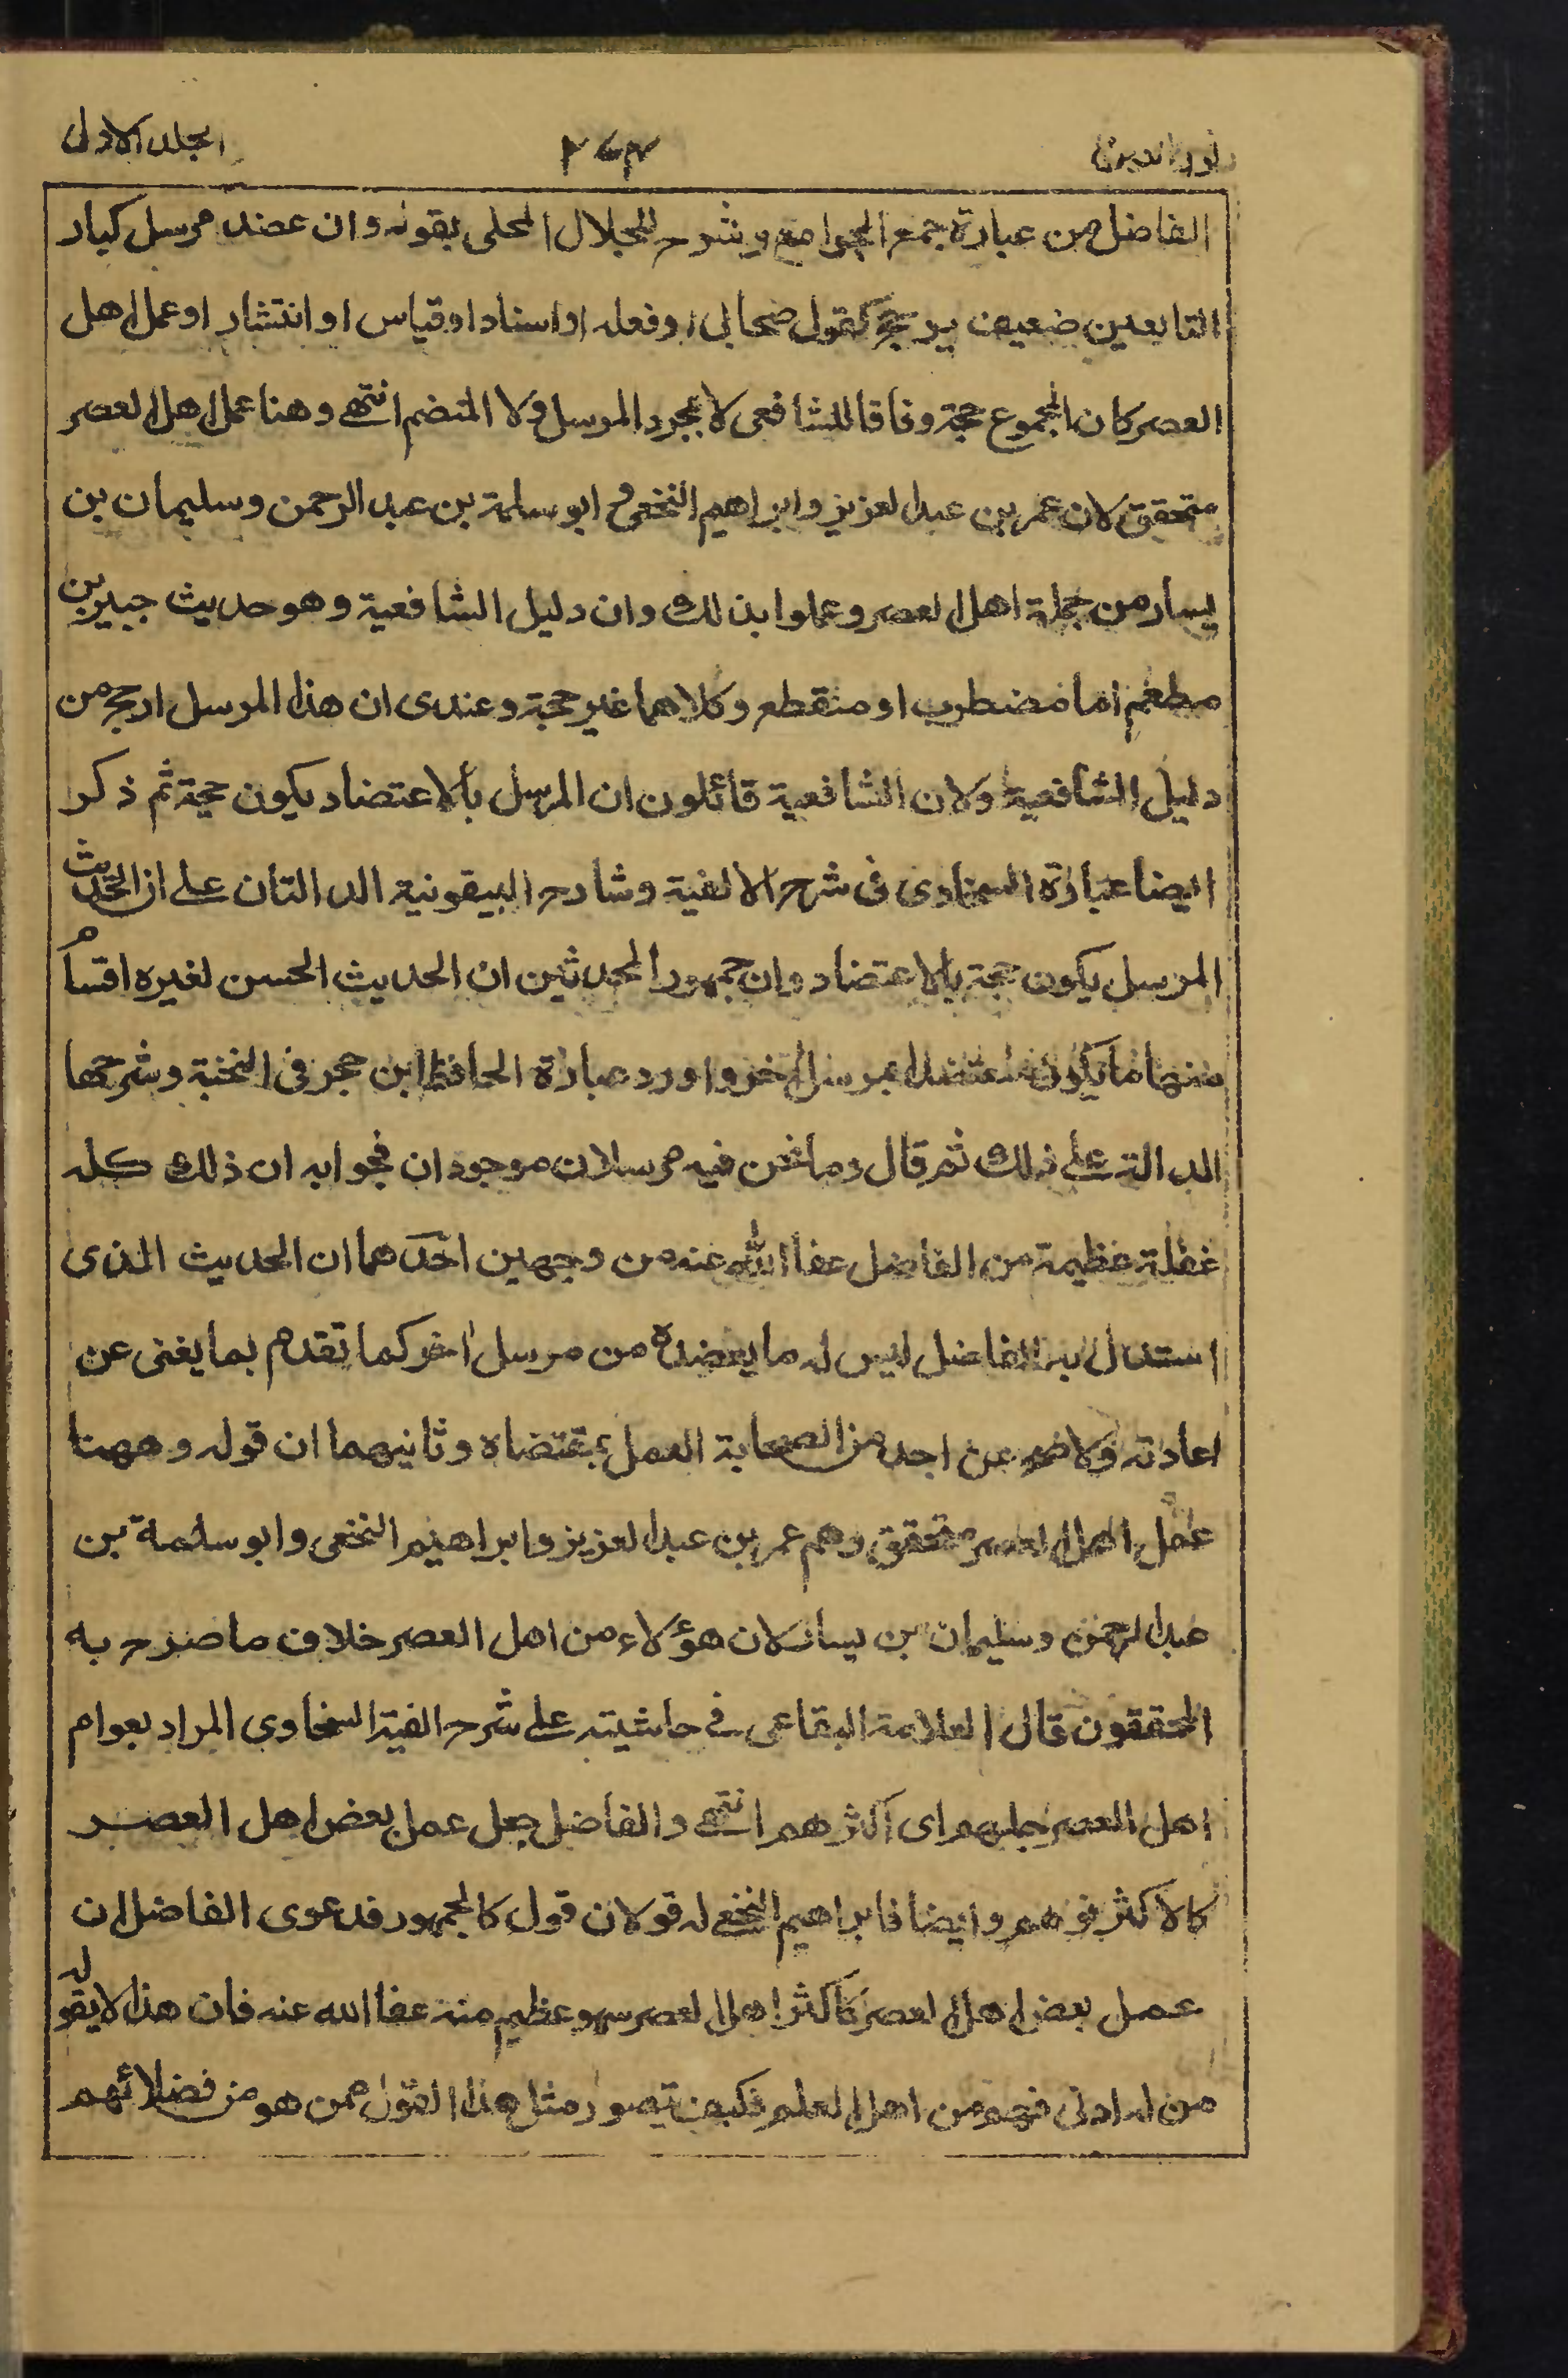 نور العينين ٢٧٣ الجلد الاول
الفاضل من عبارة جمع الجوامع وشرحه للجلال المحلى بقوله وان عضد مرسل كبار
التابعين ضعيف يرجح كقول صحابى او فعله او اسناد او قياس او انتشار او عمل اهل
العصر كان المجموع حجة وفاقا للشافعى لا مجرد المرسل ولا المنضم انتهى وهنا عمل اهل العصر
متحقق لان عمر بن عبد العزيز وابراهيم النخعى و ابو سلمة بن عبد الرحمن وسليمان بن
يسار من جملة اهل العصر وعملوا بذلك وان دليل الشافعية وهو حديث جبير بن
مطعم اما مضطرب او منقطع وكلاهما غير حجة وعندى ان هذا المرسل ارجح من
دليل الشافعية ولان الشافعية قائلون ان المرسل بالاعتضاد يكون حجة ثم ذكر
ايضا عبارة السخاوى فى شرح الالفية وشارح البيقونية الدالتان على ان الحديث
المرسل يكون حجة بالاعتضاد وان جمهور المحدثين ان الحديث الحسن لغيره اقسام
منها ما يكون معتضدا بمرسل اخر واورد عبارة الحافظ ابن حجر فى النخبة وشرحها
الدالة على ذلك ثم قال وما نحن فيه مرسلان موجودان فجوابه ان ذلك كله
غفلة عظيمة من الفاضل عفا الله عنه من وجهين احدهما ان الحديث الذى
استدل به الفاضل ليس له ما يعضده من مرسل اخر كما تقدم بما يغنى عن
اعادته ولا صح عن احد من الصحابة العمل بمقتضاه وثانيهما ان قوله وههنا
عمل اهل العصر متحقق وهم عمر بن عبد العزيز وابراهيم النخعى وابو سلمة بن
عبد الرحمن وسليمان بن يسار لان هؤلاء من اهل العصر خلاف ما صرح به
المحققون قال العلامة البقاعى فى حاشيته على شرح الفية السخاوى المراد بعوام
اهل العصر جلهم اى اكثرهم انتهى والفاضل جعل عمل بعض اهل العصر
كالاكثر فوهم وايضا فابراهيم النخعى له قولان قول كالجمهور فدعوى الفاضل ان
عمل بعض اهل العصر كاكثر اهل العصر سهو عظيم منه عفا الله عنه فان هذا لا يقوله
من له ادنى فهم من اهل العلم فكيف تصور مثل هذا القول ممن هو من فضلائهم